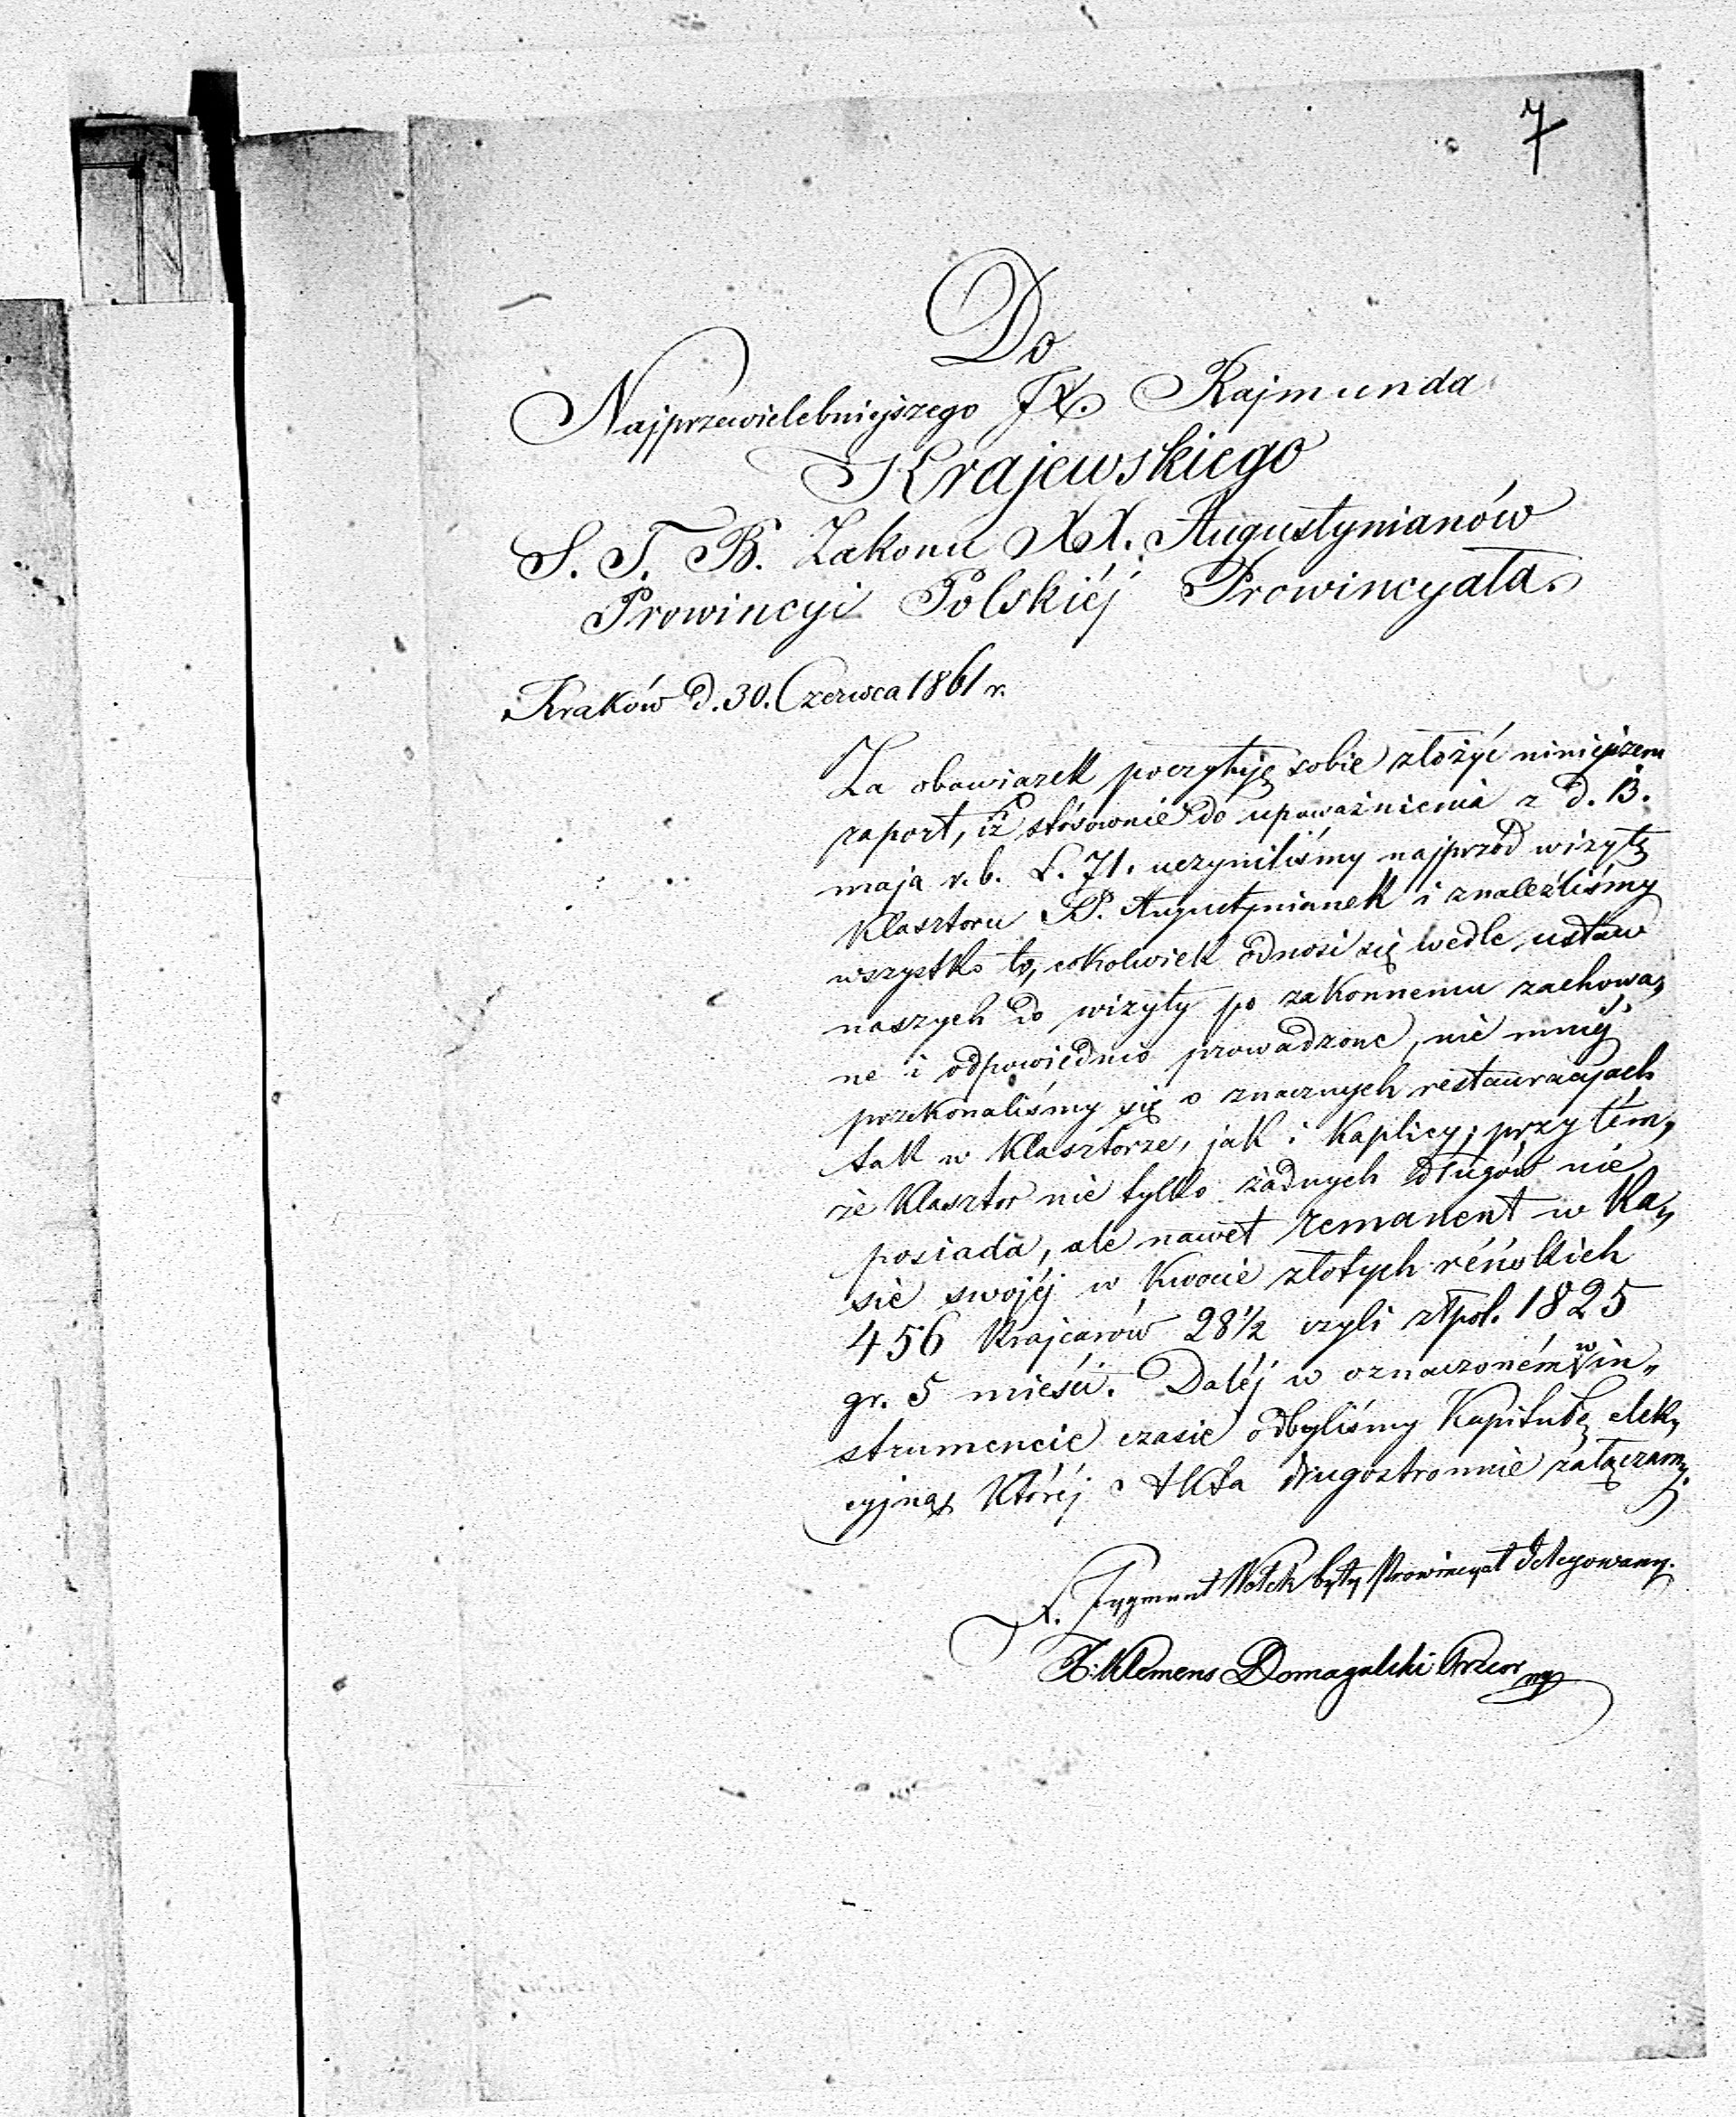 7
Do
Najprzewielebniejszego JX. Rajmunda
Krajewskiego
S. T. B. Zakonu XX. Augustynianów
Prowincyi Polskiéj Prowincyała.
Kraków d. 30. Czerwca 1861 r.
Za obowiązek poczytuję sobie złożyć niniejszem
raport, iż stósownie do upoważnienia z d. 13.
maja r. b. L. 71. uczyniliśmy najprzód wizytę
Klasztoru PP. Augustynianek i znaleźliśmy
wszystko to, cokolwiek odnosi się wedle ustaw
naszych do wizyty po zakonnemu zachowa„
ne i odpowiednio prowadzone, nie mniéj
przekonaliśmy się o znacznych restauracyjach
tak w Klasztorze, jak i Kaplicy; przy tém,
że Klasztor nie tylko żadnych długów nie
posiada, ale nawet remanent w Ka„
sie swojéj w Kwocie złotych réńskich
456 Krajcarów 28½ czyli złpol. 1825
gr. 5 mieści. Daléj w oznaczoném w in„
strumencie czasie odbyliśmy Kapitułę elek„
cyjną, Któréj Akta drugostronnie załączamy.
X. Zygmunt Wołek były Prowincyał delegowany.
X. Klemens Domagalski Przeor mp